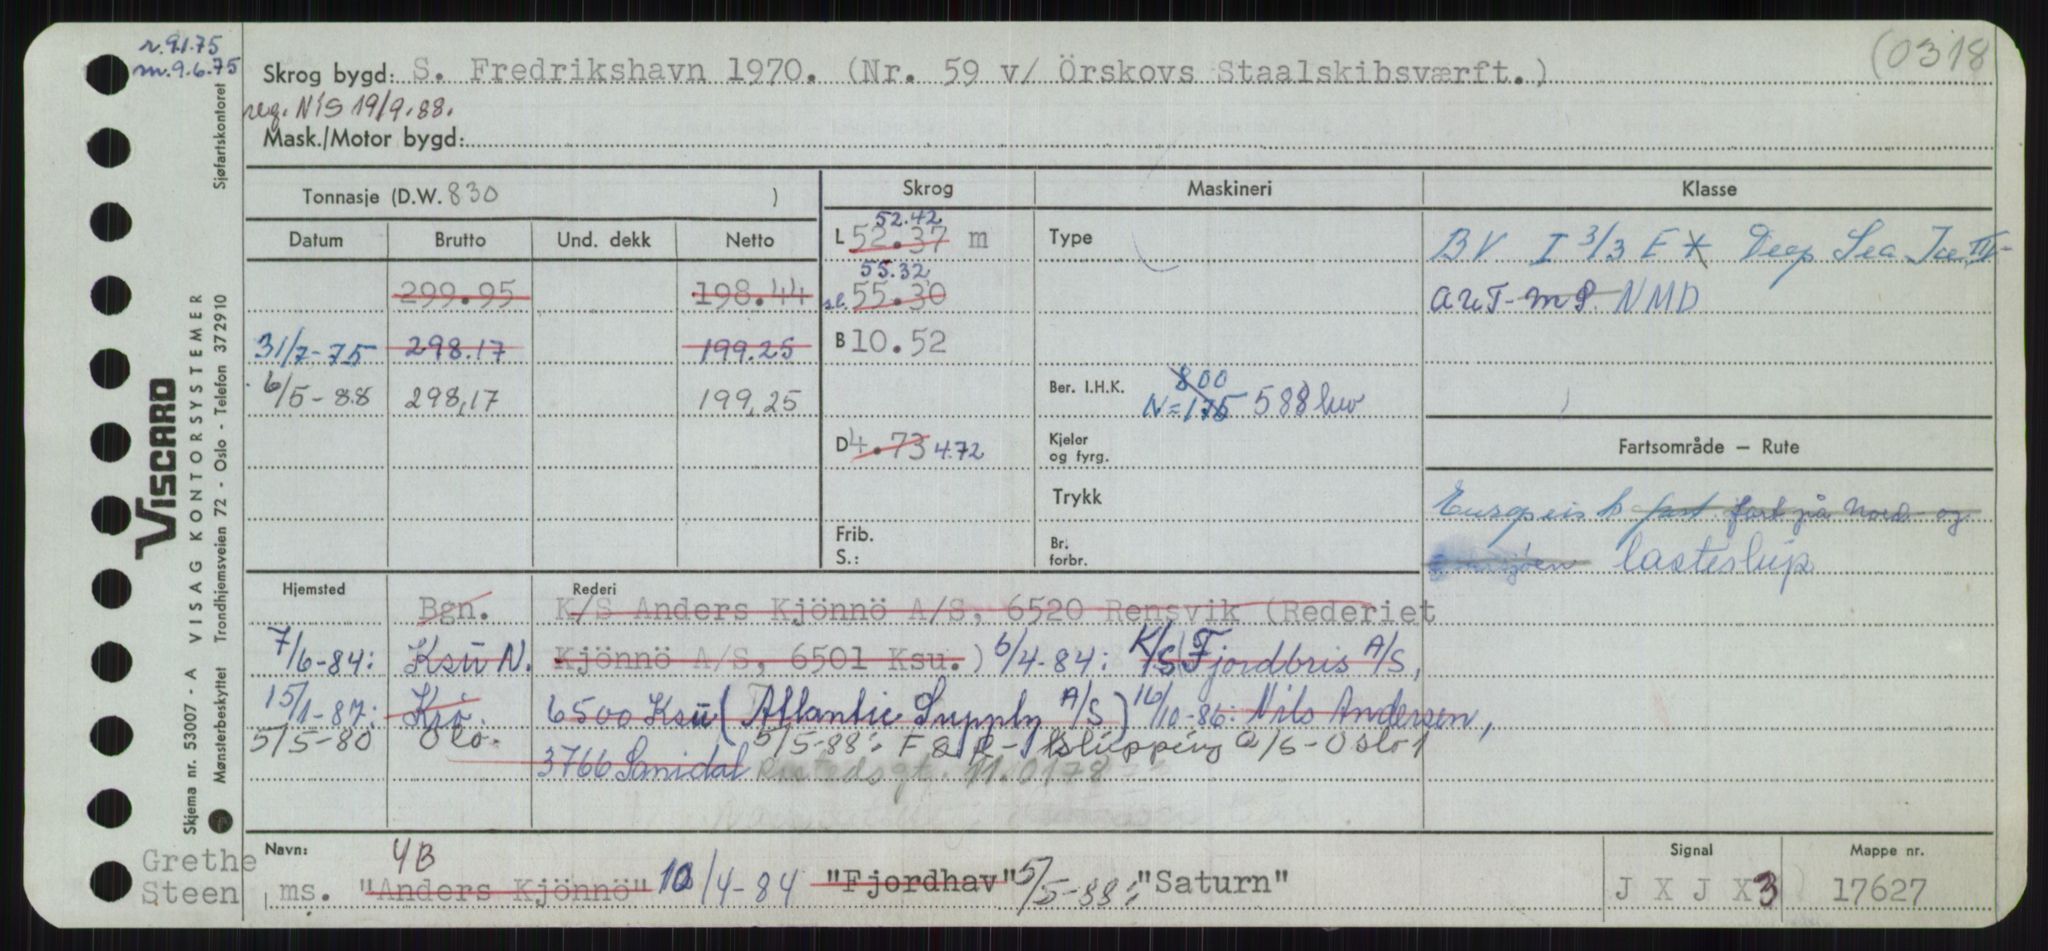 r.9.1.75
m.9.6.75
(0318
Skrog bygd: S. Fredrikshavn 1970. (Nr. 59 v/ Örskovs Staalskibsværft.)
reg. NIS 19/9.88.
Mask./Motor bygd:
Tonnasje (D.W. 830 )
Skrog
Maskineri
Klasse
Datum Brutto Und. dekk Netto
52.42
L 52.37 m
Type
BV I 3/3 E Deep Sea Ice III-
299.95 198.44
55.32
sl. 55.30
AUT-MP. NMD
31/7-75 298.17 199.25
B 10.52
6/5-88 298,17 199,25
Ber. I.H.K. 800
N=175 588 kw
D 4.73 4.72
Kjeler
og fyrg.
Fartsområde — Rute
Trykk
Europeisk fart fart på Nord- og
Frib.
S.:
Br.
forbr.
lasteskip
Hjemsted
Rederi
Bgn. K/S Anders Kjönnö A/S, 6520 Rensvik (Rederiet
7/6-84: Ksu N. Kjönnö A/S, 6501 Ksu.) 6/4-84: K/S Fjordbris A/S,
15/1-87: 6500 Ksu (Atlantic Supply A/S) 16/10-86: Nils Andersen,
5/5-80 Olo. 5/5-88: Shipping A/S-Oslo 1
3766 Sanidal 11.0178
Navn: 4B
Grethe
Steen
ms. "Anders Kjönnö" 10/4-84 "Fjordhav" 5/5-88: "Saturn"
Signal
J X J X 3
Mappe nr.
17627
VISCARD
VISAG KONTORSYSTEMER
Skjema nr. 53007 - A
Mønsterbeskyttet Trondhjemsveien 72 - Oslo - Telefon 372910 Sjøfartskontoret